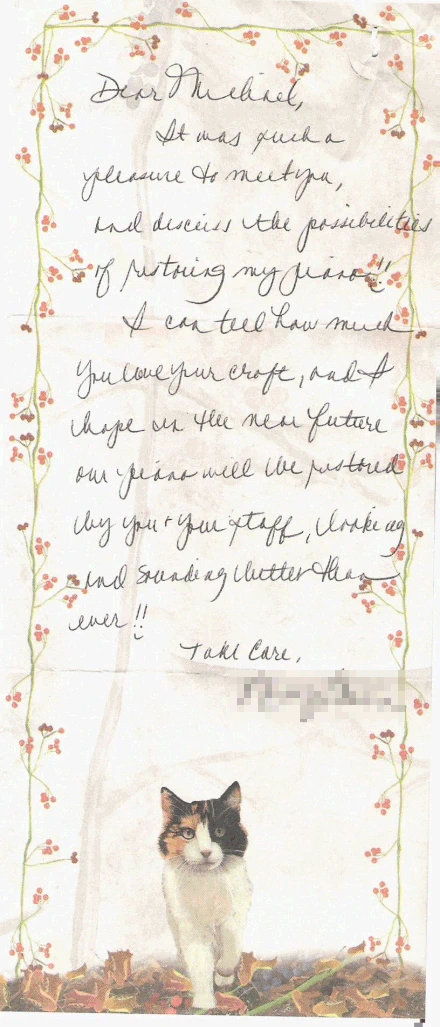 Dear Michael,
It was such a
pleasure to meet you,
and discuss the possibilities
of restoring my piano!!
I can tell how much
you love your craft, and I
hope in the near future
our piano will be restored
by you + your staff, looking
and sounding better than
ever!!
Take Care,